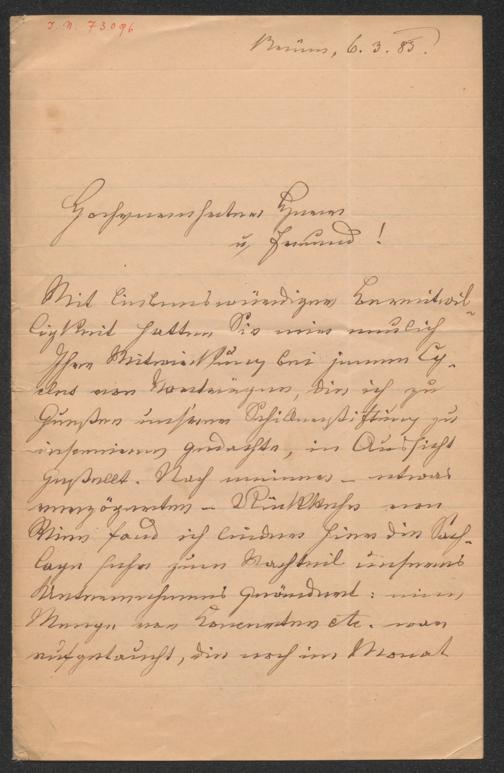 I. N. 73096
Brünn, 6. 3. 85.
Hochverehrter Herr
u. Freund!
Mit liebenswürdiger Bereitwil-
ligkeit hatten Sie mir neulich
Ihre Mitwirkung bei jenem Cy-
clus von Vorträgen, die ich zu
Gunsten unserer Schillerstiftung zu
insceniren gedachte, in Aussicht
gestellt. Nach meiner – etwas
verzögerten – Rückkehr von
Wien fand ich leider hier die Sach-
lage sehr zum Nachteil unseres
Unternehmens geändert: eine
Menge von Concerten etc. war
aufgetaucht, die noch im Monat